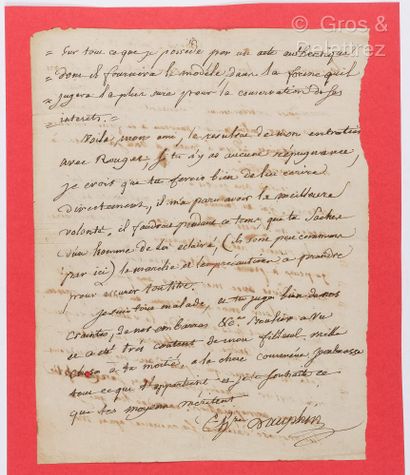 © Gros &
Delettrez
= sur tout ce que je possede par un acte authentique
= dont il fournira le modèle dans la forme qu'il
= jugera la plus sure pour la conservation de ses
= interets.
Voila, mon ami, le resultat de mon entretien
avec Rouget si tu n'y as aucune répugnance,
je crois que tu feras bien de lui écrire
directement, il m'a paru avoir la meilleure
volonté, il faudrait pendant ce tems, que tu saches
d'un homme de loi éclairé, (ils sont peu communs
par ici) la marche et les précautions a prendre
pour assurer ton titre.
je suis tres malade, et tu juges bien de nos
craintes, de nos embarras &c. a vu
et a eté trés content de mon filleul, mille
choses a ta moitié, a la chere
tout ce qui t'appartient et je te souhaite ce
que tes moyens méritent
Dauphin